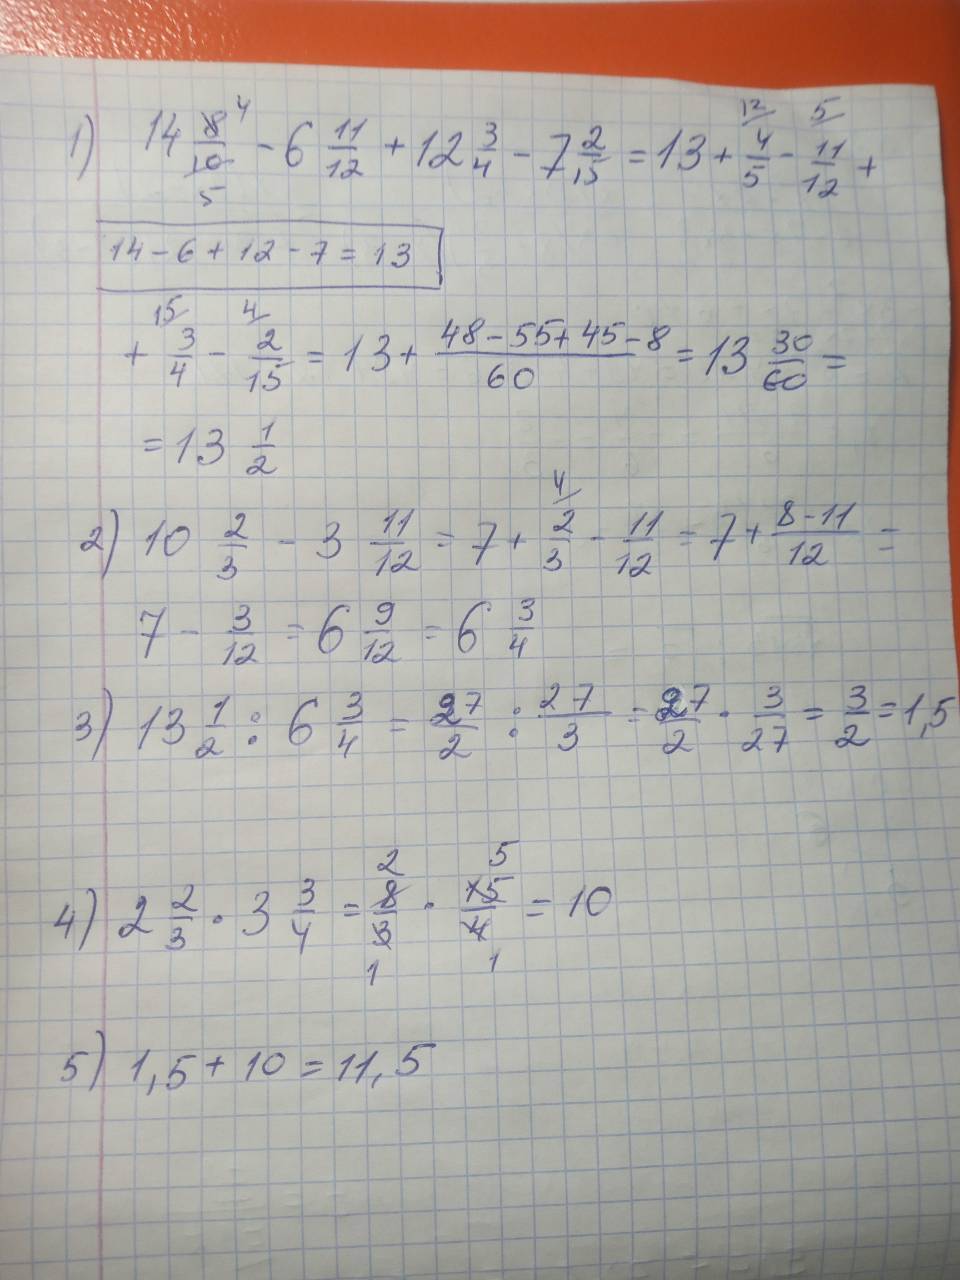 1) 14 8/10 4 5 - 6 11/12 + 12 3/4 - 7 2/15 = 13 + 4/5 12/ - 11/12 5/ +
14 - 6 + 12 - 7 = 13
+ 3/4 15/ - 2/15 4/ = 13 + (48 - 55 + 45 - 8)/60 = 13 30/60 =
= 13 1/2
2) 10 2/3 - 3 11/12 = 7 + 2/3 4/ - 11/12 = 7 + (8 - 11)/12 =
7 - 3/12 = 6 9/12 = 6 3/4
3) 13 1/2 : 6 3/4 = 27/2 : 27/3 = 27/2 · 3/27 = 3/2 = 1,5
4) 2 2/3 · 3 3/4 = 8/3 2 1 · 15/4 5 1 = 10
5) 1,5 + 10 = 11,5